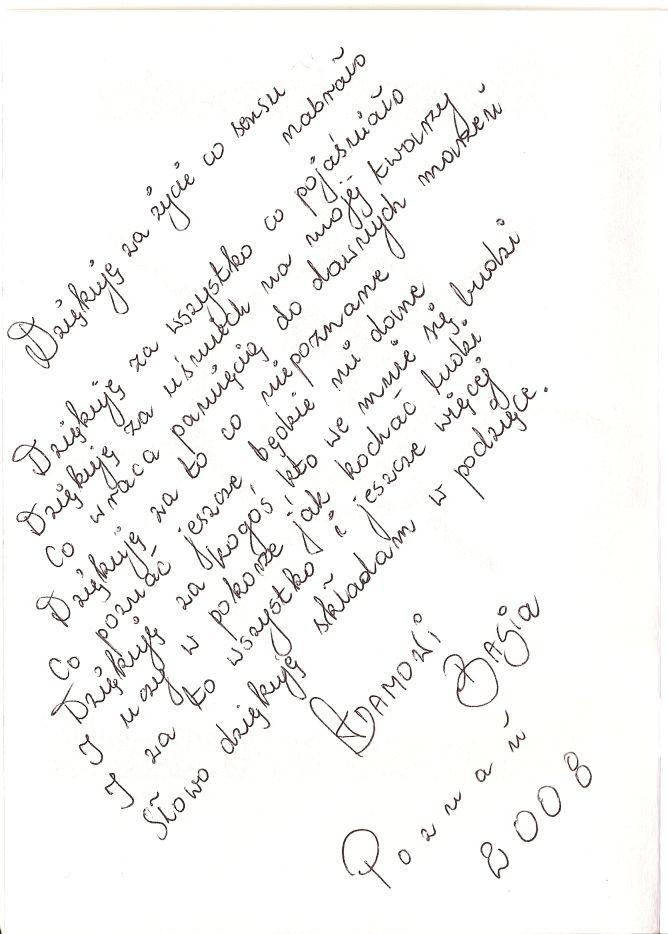 Dziękuję za życie co sensu
nabrało
Dziękuję za wszystko co pojaśniało
Dziękuję za uśmiech na mojej twarzy
Co wraca pamięcią do dawnych marzeń
Dziękuję za to co niepoznane
Co poznać jeszcze będzie mi dane
Dziękuję za kogoś kto we mnie się budzi
I uczy w pokorze jak kochać ludzi
I za to wszystko i jeszcze więcej
Słowo dziękuję składam w podzięce.
ADAMOWI
BASIA
Poznań
2008